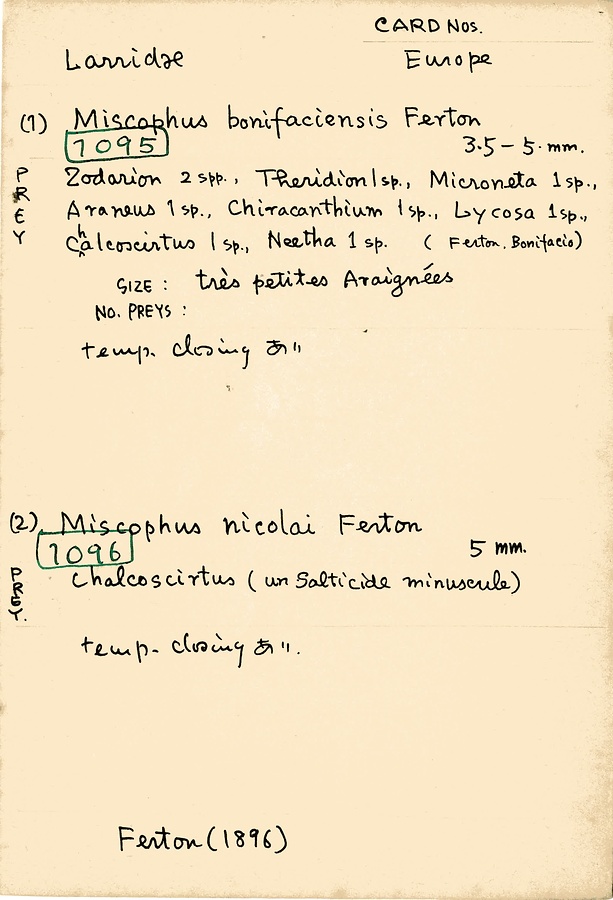 CARD NOS.
Larridae Europe
(1) Miscophus bonifaciensis Ferton
1095 3.5 - 5. mm.
PREY Zodarion 2 spp., Theridion 1 sp., Microneta 1 sp.,
Araneus 1 sp., Chiracanthium 1 sp., Lycosa 1 sp.,
Chalcoscirtus 1 sp., Neetha 1 sp. (Ferton. Bonifacio)
SIZE : très petites Araignées
NO. PREYS :
temp. closing あり
(2) Miscophus nicolai Ferton
1096 5 mm.
PREY. Chalcoscirtus (un Salticide minuscule)
temp. closing あり.
Ferton (1896)